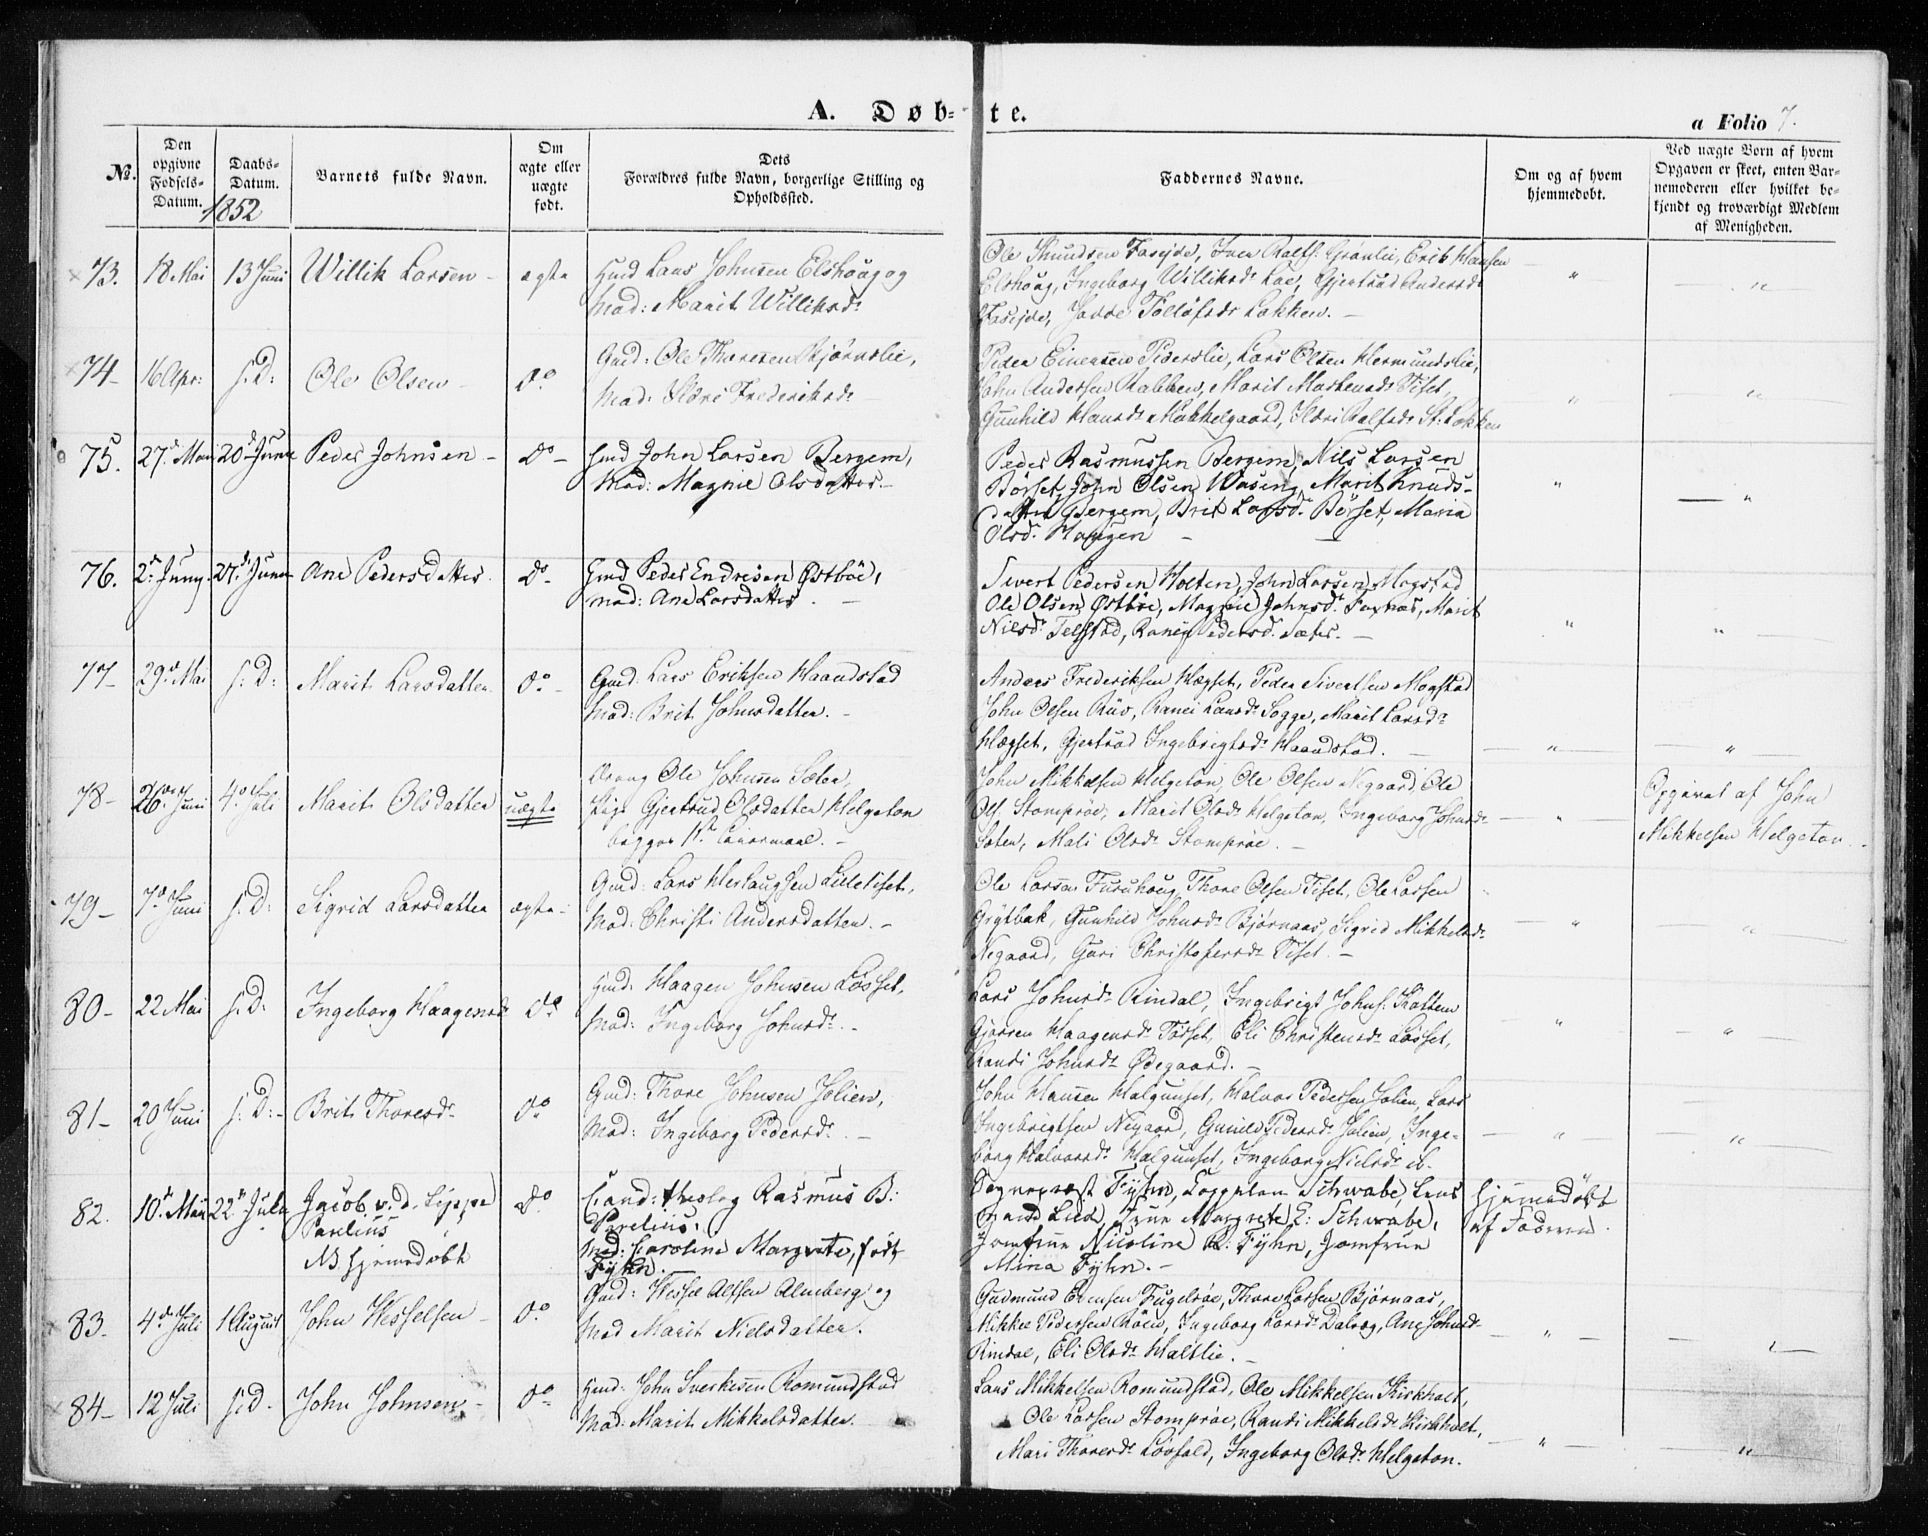 A. Døb-te.
a Folio 7.
No.
Den opgivne Fødsels-Datum.
Daabs-Datum.
1852
Barnets fulde Navn.
Om ægte eller uægte født.
Dets Forældres fulde Navn, borgerlige Stilling og Opholdssted.
Faddernes Navne.
Om og af hvem hjemmedøbt.
Ved uægte Børn af hvem Opgaven er skeet, enten Barnemoderen eller hvilket bekjendt og troværdigt Medlem af Menigheden.
73. 18 Mai 13 Juni Willik Larsen ægte
Hmd Lars Johnsen Elshoug og
Mod: Marit Williksd.
Ole Knudsen Faseide, Iver Ralfs. Grønlie, Erik Hansen
Elshoug, Ingeborg Williksd. Loe, Gjertrud Andersd.
Løkken.
74 16 Apr: s. D: Ole Olsen do
Gmd: Ole Thoresen Bjørnslie,
Mod: Frederiksd.
Peder Einersen Pederslie, Lars Olsen Hermundslie,
John Andersen Rabben, Marit Tiset,
Gunhild Hansd. Mikkelgaard, St: Løkken
75. 27de Mai 20de Juni Peder Johnsen do
Hmd John Larsen Bergem,
Mod: Magnie Olsdatter.
Peder Rasmussen Bergem, Nils Larsen
Børset, John Olsen Marit Knuds-
datter Bergem, Brit Larsd. Børset, Maria
Olsd. Haugen
76. 2den Juny 27de Juni Ane Pedersdatter do
Hmd Peder Endresen Østbøe,
mod: Ane Larsdatter.
Sivert Pedersen Holten, John Larsen Mogstad
Ole Olsen Østbøe, Magnie Johnsd. Marit
Nilsd. Telstad, Ranei Pedersd. Sæter.
77 29de Mai s: D: Marit Larsdatter do
Gmd Lars Eriksen Haandstad
Mod: Brit Johnsdatter.
Anders Frederiksen Hægset, Peder Sivertsen Mogstad
John Olsen Ranei Larsd. Sogge, Marit Larsd.
Hægset, Gjertrud Ingebrigtsd. Haandstad.
78 26de Juni 4de Juli Marit Olsdatter uægte
Dreng Ole Johnsen Sæter,
Pige Gjertrud Olsdatter Helgeton
begges 1ste Leiermaal.
John Mikkelsen Helgeton, Ole Olsen Negaard, Ole
Ols. Stomprøe, Marit Olsd. Helgeton, Ingeborg Johnsd.
Sæter, Mali Olsd. Stomprøe.
Opgivet af John
Mikkelsen Helgeton.
79 7de Juni s: D: Sigrid Larsdatter ægte
Gmd: Lars Herlaugsen Lilletiset,
Mod: Christi Andersdatter.
Ole Larsen Furuhoug, Thore Olsen Tiset, Ole Larsen
Grytbak, Gunhild Johnsd. Bjørnaas, Sigrid Mikkelsd.
Negaard, Guri Christofersd. Tiset.
80 22 Mai s: D: Ingeborg Haagensd. do
Hmd: Haagen Johnsen Løsset,
Mod: Ingeborg Johnsd.
Lars Johnsd. Rindal, Ingebrigt Johns.
Haagensd. Eli Christensd. Løsset,
Randi Johnsd. Ødegaard.
81 20 Juni s: D: Brit Thoresd. do
Gmd: Thore Johnsen Jølien,
Mod: Ingeborg Pedersd.
John Hansen Halgunset, Halvor Pedersen Jolien, Lars
Ingebrigtsen Negaard, Gunild Pedersd. Jolien, Inge-
borg Halvorsd. Halgunset, Ingeborg Nielsd.
82. 10de Mai 22de Juli Jacob v. d. Lippe do
Parelius
NB. hjemmedøbt
Cand: theolog Rasmus B:
Parelius.
Mod: Caroline Margrete, født
Fyhn.
Sogneprest Fyhn, Capellan Schwabe, Lens
mand Lied, Frue Margrete E: Schwabe,
Jomfrue Nicoline R: Fyhn, Jomfrue
Mina Fyhn.
hjemmedøbt
af Faderen.
83. 4de Juli 1 August John Wesselsen do
Gmd: Wessel Alfsen Almberg og
Mod Marit Nielsdatter.
Gudmund Evensen Fugelrøe, Thore Larsen Bjørnaas,
Mikkel Pedersen Røen, Ingeborg Larsd. Dalseg, Ane Johnsd.
Rindal, Eli Olsd. Haltlie.
84 12 Juli s. D. John Johnsen do
Hmd: John Sverkesen Romundstad
Mod: Marit Mikkelsdatter.
Lars Mikkelsen Romundstad, Ole Mikkelsen Kirkholt,
Ole Larsen Stomprøe, Randi Mikkelsd. Kirkholt,
Mari Thoresd. Løvfald, Ingeborg Olsd. Helgeton.